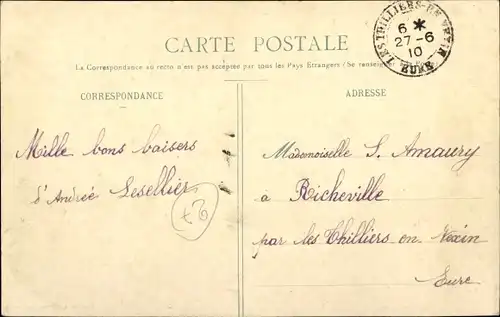 CARTE POSTALE
La Correspondance au recto n'est pas acceptée par tous les Pays Etrangers (Se renseigner
CORRESPONDANCE
ADRESSE
LES THILLIERS-EN-VEXIN
6 *
27-6
10
EURE
Mille bons baisers
d'Andrée Lesellier
Mademoiselle S. Amaury
à Richeville
par les Thilliers en Vexin
Eure